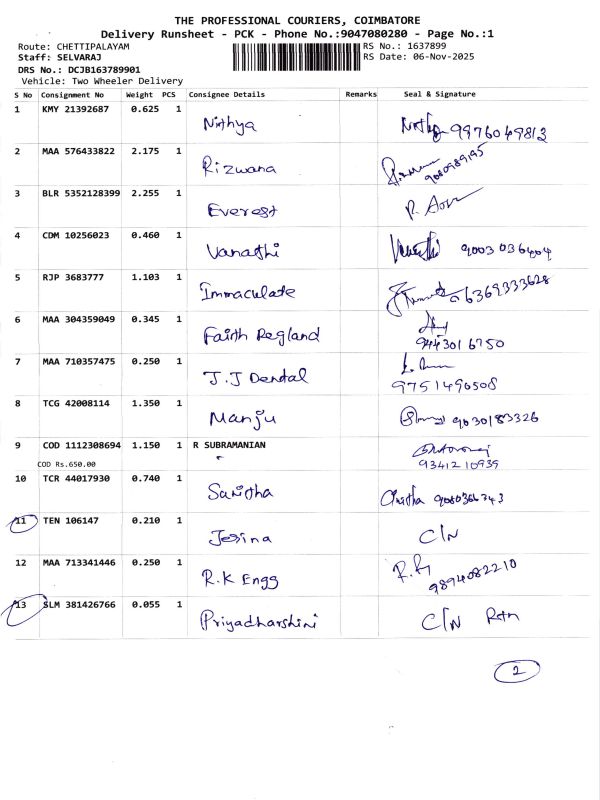 THE PROFESSIONAL COURIERS, COIMBATORE
Delivery Runsheet - PCK - Phone No.:9047080280 - Page No.:1
Route: CHETTIPALAYAM RS No.: 1637899
Staff: SELVARAJ RS Date: 06-Nov-2025
DRS No.: DCJB163789901
Vehicle: Two Wheeler Delivery
S No Consignment No Weight PCS Consignee Details Remarks Seal & Signature
1 KMY 21392687 0.625 1 Nithya 9976049813
2 MAA 576433822 2.175 1 Rizwana 9080989195
3 BLR 5352128399 2.255 1 Everest
4 CDM 10256023 0.460 1 Vanathi 9003036404
5 RJP 3683777 1.103 1 Immaculate 6369333628
6 MAA 304359049 0.345 1 Fairth Regland
9443016750
7 MAA 710357475 0.250 1 J.J Dental
9751490508
8 TCG 42008114 1.350 1 Manju 9030183326
9 COD 1112308694 1.150 1 R SUBRAMANIAN
COD Rs.650.00 9341210939
10 TCR 44017930 0.740 1 Sanitha 9080366343
11 TEN 106147 0.210 1 Jesina C/N
12 MAA 713341446 0.250 1 R.K Engg 9894082210
13 SLM 381426766 0.055 1 Priyadharshini C/N Rtn
2